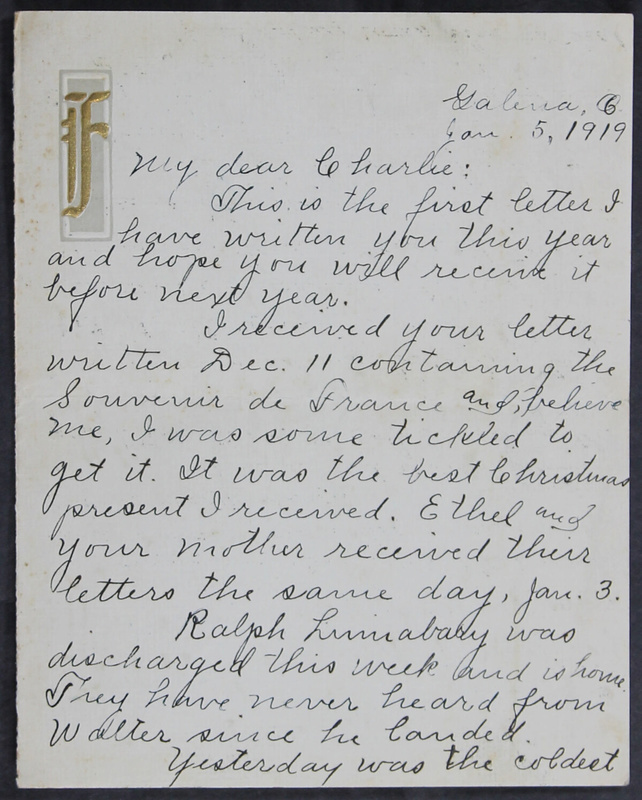 F
Galena, O
Jan. 5, 1919
My dear Charlie:
This is the first letter I
have written you this year
and hope you will receive it
before next year.
I received your letter
written Dec. 11 containing the
Souvenir de France and, believe
me, I was some tickled to
get it. It was the best Christmas
present I received. Ethel and
your mother received their
letters the same day, Jan. 3.
Ralph Linnabary was
discharged this week and is home.
They have never heard from
Walter since he landed.
Yesterday was the coldest